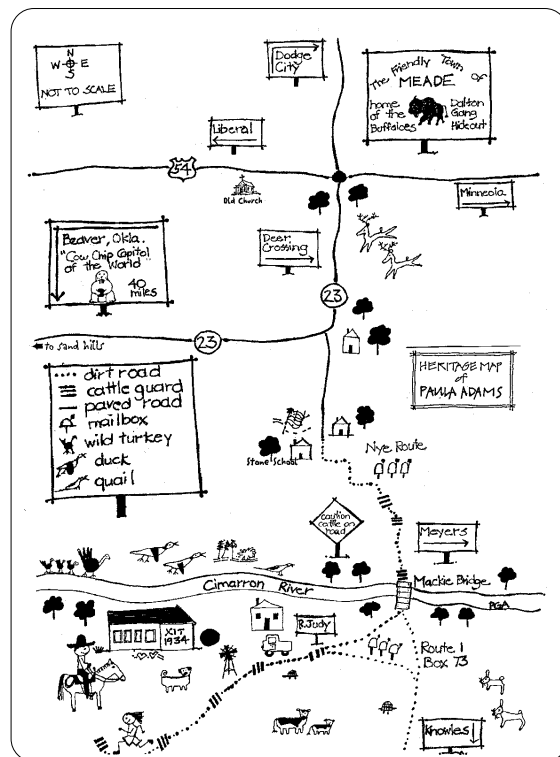 N
W E
S
NOT TO SCALE
Dodge
City
The Friendly Town of
MEADE
home
of the
Buffaloes
Dalton
Gang
Hideout
Liberal
54
Old Church
Minneola
Beaver, Okla.
"Cow Chip Capitol
of the World"
40
miles
Deer
Crossing
23
to sand hills
23
HERITAGE MAP
of
PAULA ADAMS
dirt road
cattle guard
paved road
mailbox
wild turkey
duck
quail
Stone School
Nye Route
caution
cattle on
road
Meyers
Cimarron River
Mackie Bridge
PGA
XIT
1934
R. Judy
Route 1
Box 73
Knowles